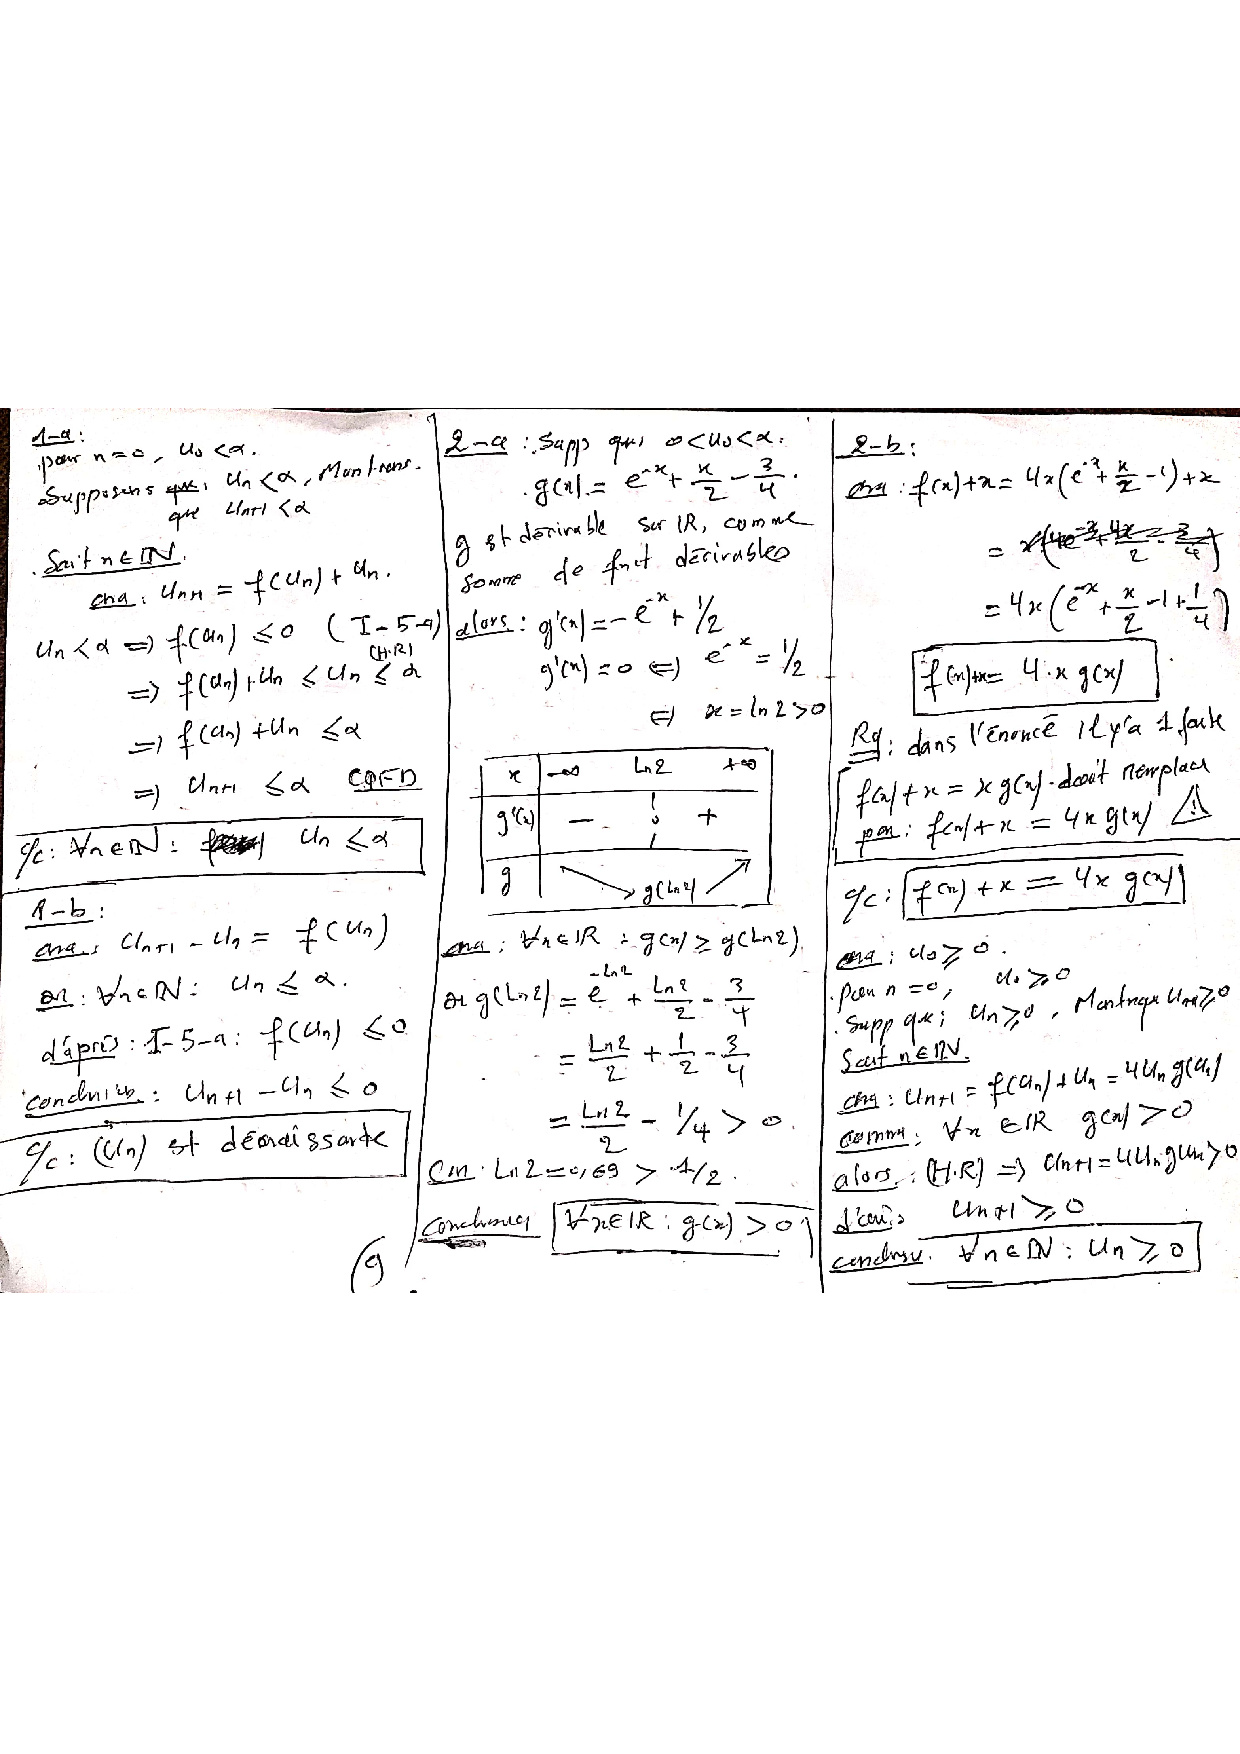 1-a:
pour n=0, u₀<α.
Supposons que: Uₙ<α, Montrons
que Uₙ₊₁<α
Soit n∈ℕ.
ona: Uₙ₊₁ = f(Uₙ)+Uₙ.
Uₙ<α ⇒ f(Uₙ) ≤0 (I-5-a)
(H.R)
⇒ f(Uₙ)+Uₙ ≤ Uₙ ≤ α
⇒ f(Uₙ)+Uₙ ≤α
⇒ Uₙ₊₁ ≤α CQFD
c/c: ∀n∈ℕ: Uₙ ≤α
1-b:
ona: Uₙ₊₁ - Uₙ = f(Uₙ)
or: ∀n∈ℕ: Uₙ ≤ α.
d'après: I-5-a: f(Uₙ) ≤0
conclusion: Uₙ₊₁ - Uₙ ≤ 0
c/c: (Uₙ) st décroissante
2-a: Supp que 0<U₀<α.
g(x) = e⁻ˣ + x/2 - 3/4.
g st dérivable sur IR, comme
somme de fnct dérivables
alors: g'(x) = -e⁻ˣ + 1/2
g'(x)=0 ⇔ e⁻ˣ = 1/2
⇔ x = ln2 >0
x -∞ Ln2 +∞
g'(x) - 0 +
g g(Ln2)
ona: ∀x∈IR : g(x) ≥ g(Ln2).
or g(Ln2) = e^(-Ln2) + Ln2/2 - 3/4
= Ln2/2 + 1/2 - 3/4
= Ln2/2 - 1/4 > 0.
Ln2=0,69 > 1/2.
conclusion ∀x∈IR : g(x) >0
9
2-b:
ona: f(x)+x = 4x(e⁻ˣ + x/2 - 1)+x
= 4x(e⁻ˣ + x/2 - 1 + 1/4)
f(x)+x = 4·x g(x)
Rq: dans l'énoncé il y'a 1 faute
f(x)+x = x g(x). doit remplacer
par: f(x)+x = 4x g(x) ⚠
c/c: f(x)+x = 4x g(x)
ona: U₀ ≥ 0.
.pour n=0, U₀ ≥0
.Supp que: Uₙ≥0, Montrq Uₙ₊₁≥0
Soit n∈ℕ.
ona: Uₙ₊₁ = f(Uₙ)+Uₙ = 4Uₙ g(Uₙ)
comme: ∀x ∈IR g(x) >0
alors: (H.R) ⇒ Uₙ₊₁ = 4Uₙ g(Uₙ)>0
d'où Uₙ₊₁ ≥0
conclusi. ∀n∈ℕ: Uₙ ≥0